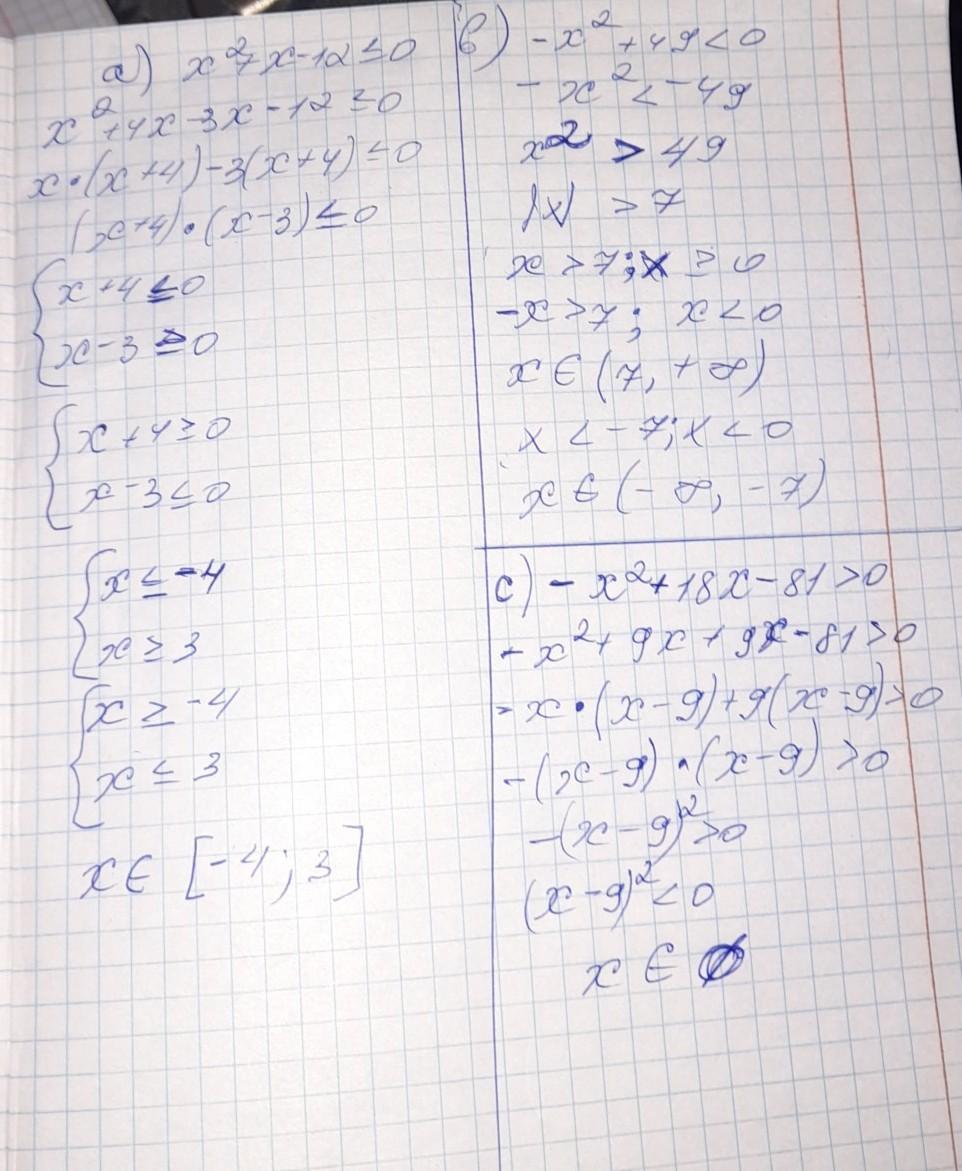 a) x²+x-12≤0
x²+4x-3x-12≤0
x·(x+4)-3(x+4)≤0
(x+4)·(x-3)≤0
{x+4≤0
x-3≥0
{x+4≥0
x-3≤0
{x≤-4
x≥3
{x≥-4
x≤3
x∈[-4;3]
б) -x²+49<0
-x²<-49
x²>49
|x|>7
x>7;x≥0
-x>7; x<0
x∈(7,+∞)
x<-7;x<0
x∈(-∞,-7)
c) -x²+18x-81>0
-x²+9x+9x-81>0
-x·(x-9)+9(x-9)>0
-(x-9)·(x-9)>0
-(x-9)²>0
(x-9)²<0
x∈∅